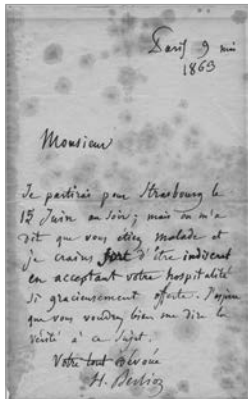 Paris 9 mai
1863
Monsieur
Je partirai pour Strasbourg le
15 Juin au soir; mais on m'a
dit que vous étiez malade et
je crains fort d'être indiscret
en acceptant votre hospitalité
si gracieusement offerte. J'espère
que vous voudrez bien me dire la
vérité à ce sujet.
Votre tout dévoué
H. Berlioz